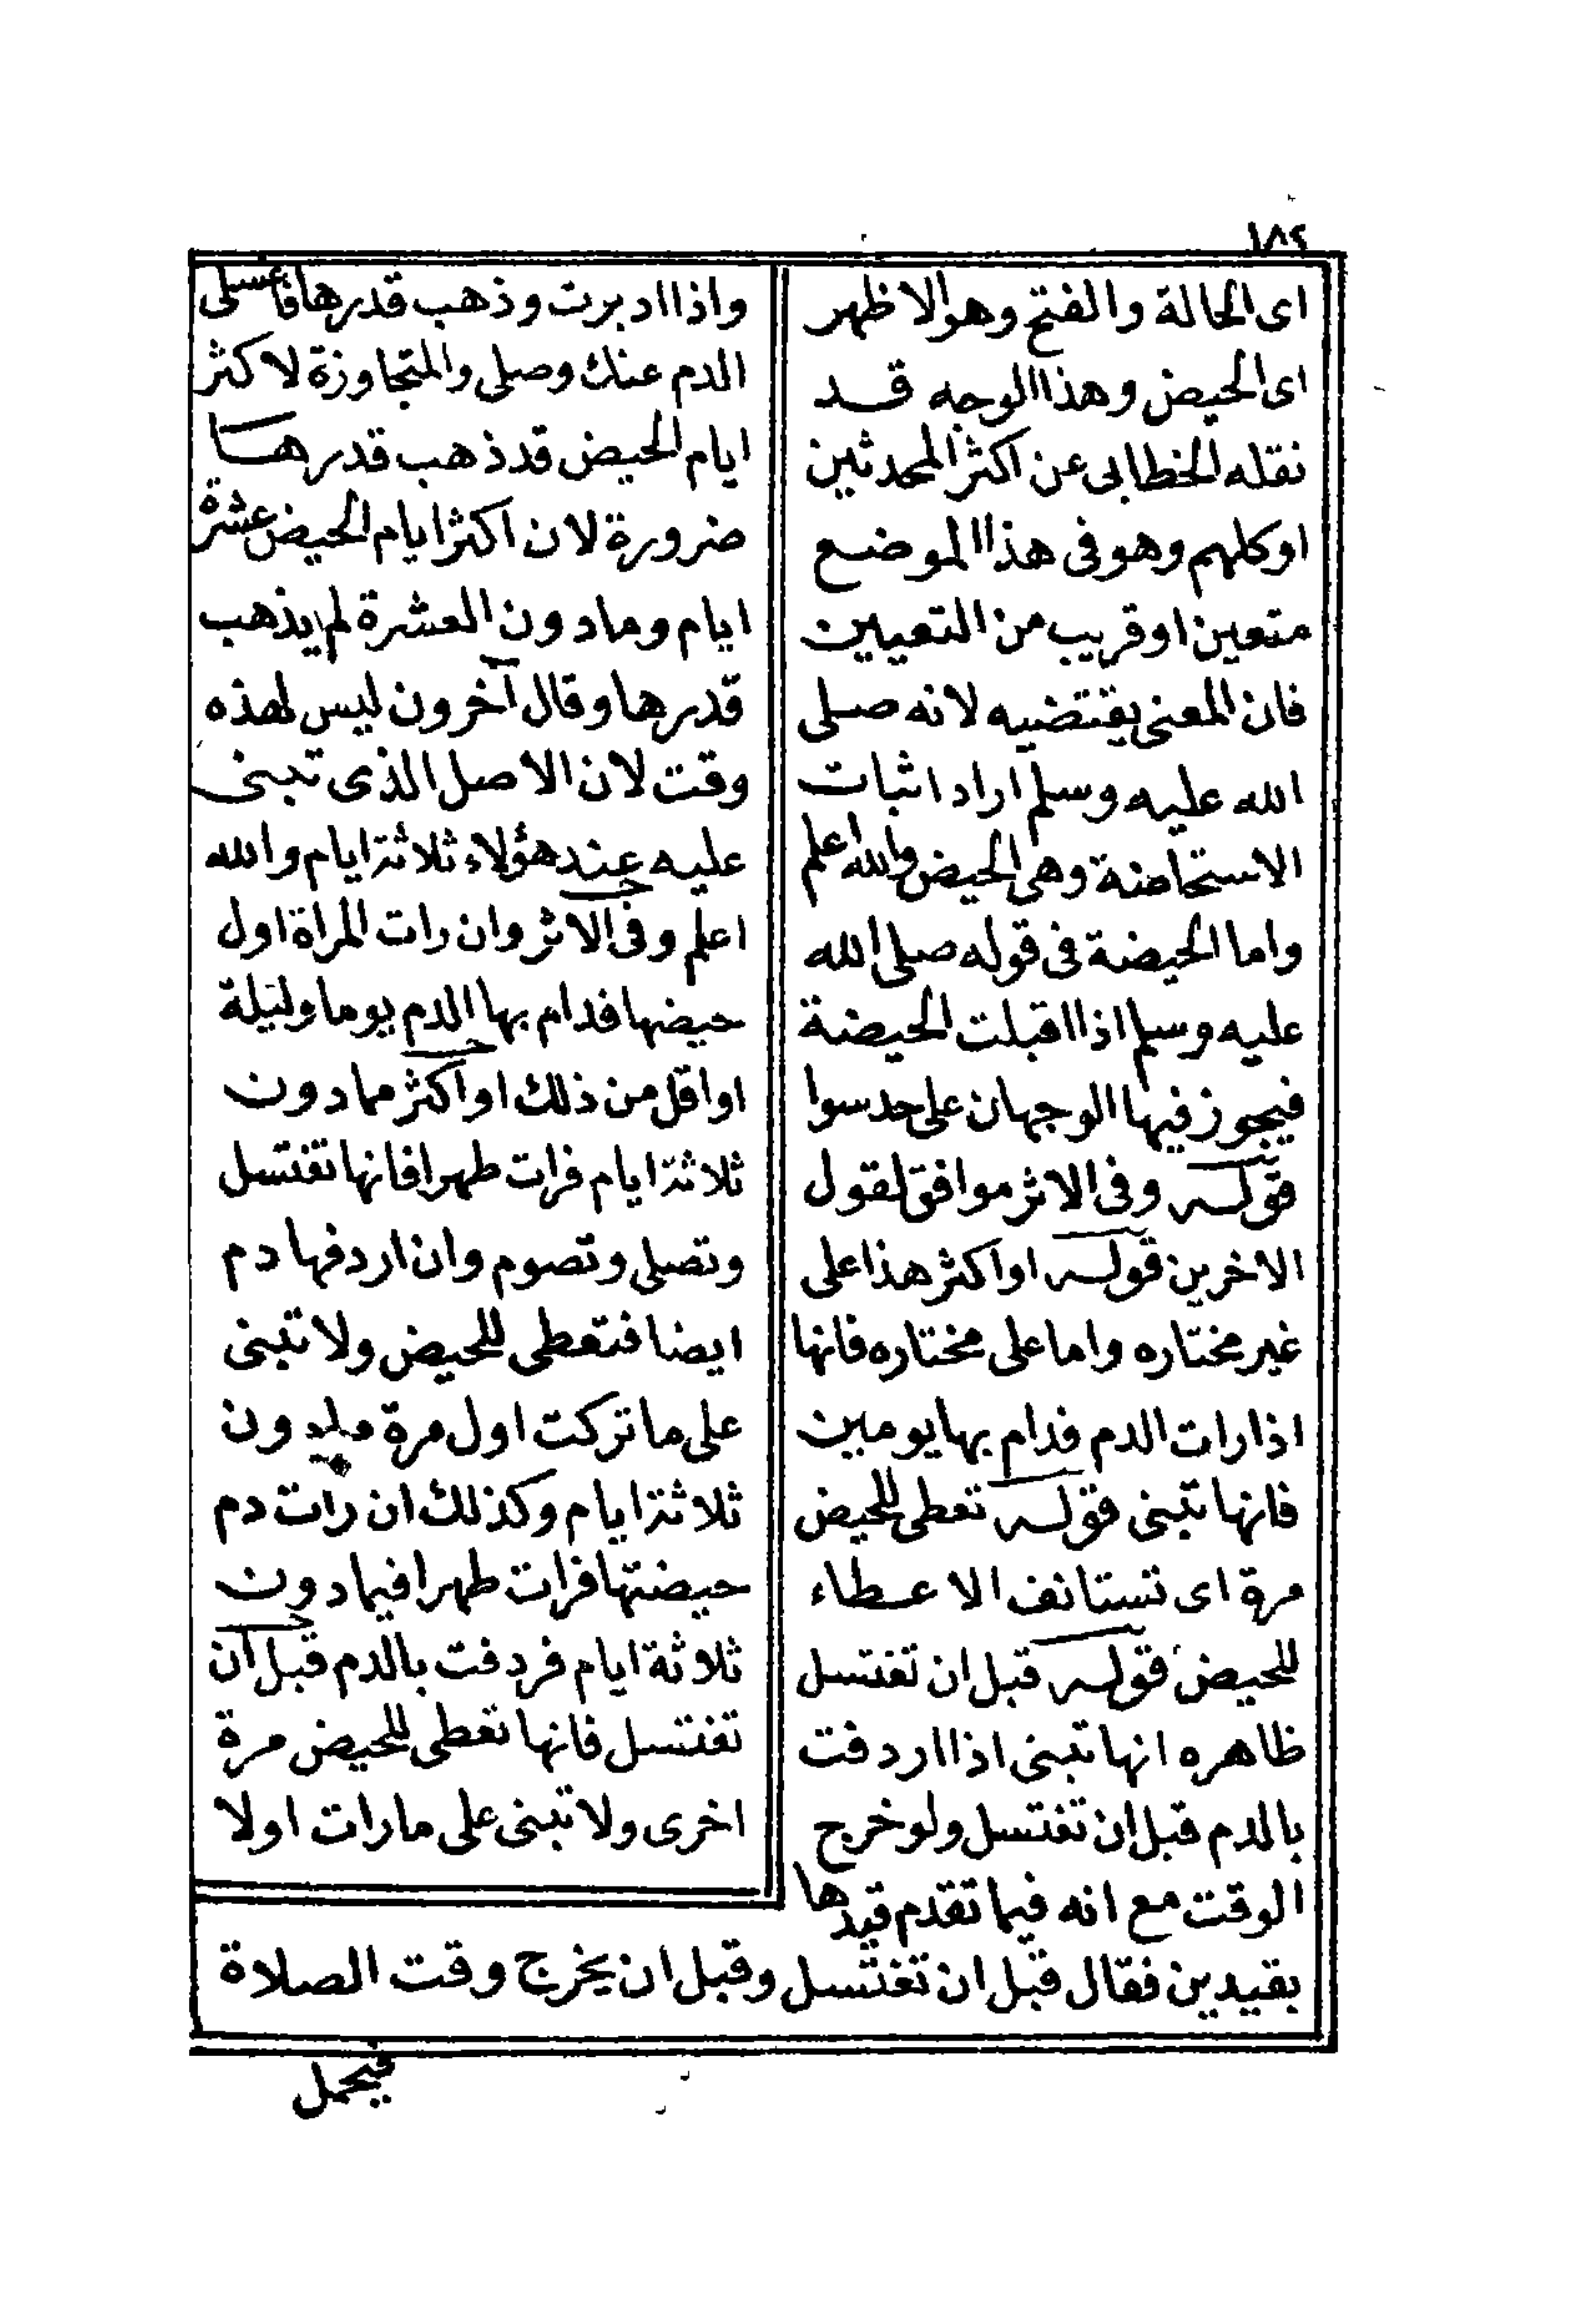 ١٨٤
اى الحالة والفتح وهو الاظهر
اى الحيض وهذا الوجه قد
نقله الخطابى عن اكثر المحدثين
اوكلهم وهو فى هذا الموضع
متعين او قريب من التعيين
فان المعنى يقتضيه لانه صلى
الله عليه وسلم اراد اثبات
الاستحاضة وهى الحيض والله اعلم
واما الحيضة فى قوله صلى الله
عليه وسلم اذا اقبلت الحيضة
فيجوز فيها الوجهان على حد سوا
قوله وفى الاثر موافق لقول
الاخرين قوله او اكثر هذا على
غير مختاره واما على مختاره فانها
اذا رات الدم فدام بها يومين
فانها تبنى قوله تعطى للحيض
مرة اى تستانف الاعطاء
للحيض قوله قبل ان تغتسل
ظاهره انها تبنى اذا اردفت
بالدم قبل ان تغتسل ولو خرج
الوقت مع انه فيما تقدم قيدها
بقيدين فقال قبل ان تغتسل وقبل ان يخرج وقت الصلاة
واذا ادبرت وذهب قدرها فاغسلى
الدم عنك وصلى والمتجاوزة لاكثر
ايام الحيض قد ذهب قدرها
ضرورة لان اكثر ايام الحيض عشرة
ايام وما دون العشرة لم يذهب
قدرها وقال آخرون ليس لهذه
وقت لان الاصل الذى تبنى
عليه عند هؤلاء ثلاثة ايام والله
اعلم وفى الاثر وان رات المراة اول
حيضها فدام بها الدم يوما وليلة
او اقل من ذلك او اكثر مما دون
ثلاثة ايام فرات طهرا فانها تغتسل
وتصلى وتصوم وان اردفها دم
ايضا فتعطى للحيض ولا تبنى
على ما تركت اول مرة مادون
ثلاثة ايام وكذلك ان رات دم
حيضتها فرات طهرا فيما دون
ثلاثة ايام فردفت بالدم قبل ان
تغتسل فانها تعطى للحيض مرة
اخرى ولا تبنى على ما رات اولا
فيحمل